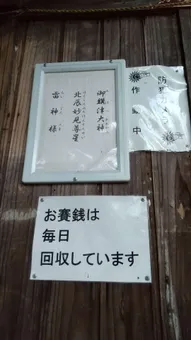 防
作動中
北辰妙見尊星
雷神様
お賽銭は
毎日
回収しています